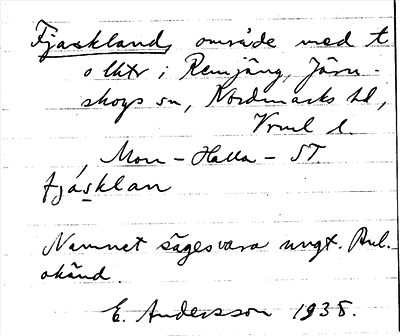 Fjaskland, område med t
o lktr i Remjäng, Järn-
skogs sn, Nordmarks hd,
Vrml l.
Mon - Halla - ST
fjásklan
Namnet säges vara ungt. Anl.
okänd.
E. Andersson 1938.